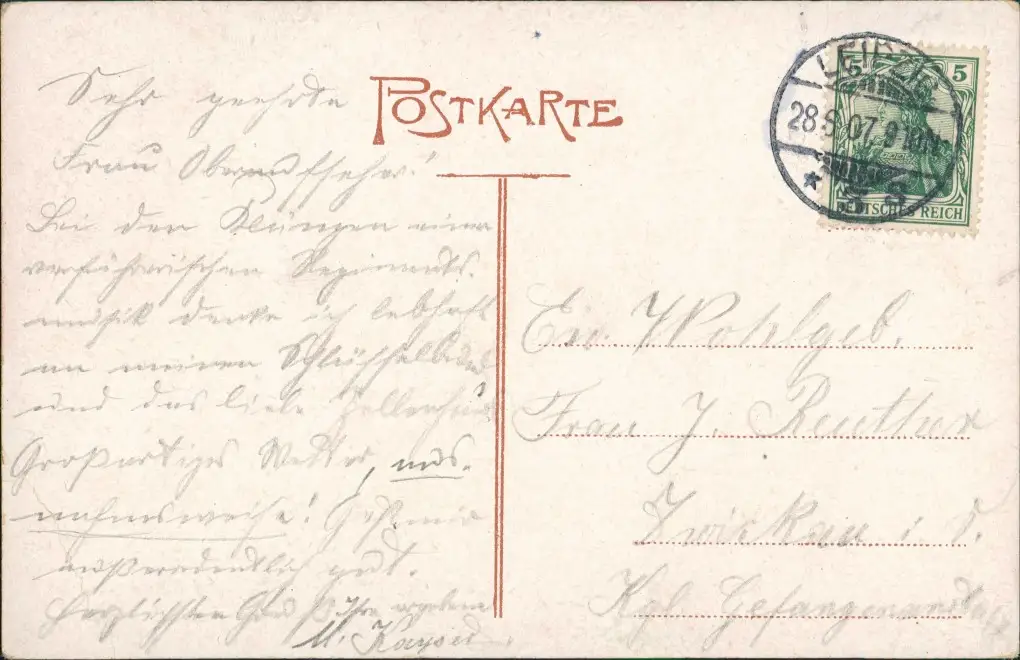 POSTKARTE
LEIPZIG
28.6.07. 9
* 3 8
5 5
DEUTSCHES REICH
Sehr geehrte
Frau Oberaufseher!
Bei den Klängen einer
Regiments-
musik denke ich lebhaft
an meinen
und das liebe
Großartiges Wetter, aus-
nahmsweise! Geht mir
außerordentlich gut.
Herzlichsten Gruß Ihre ergebene
M. Kayser.
Ew. Wohlgeb.
Frau J. Reuther
Zwickau i. S.
Kgl. Gefangenanstalt